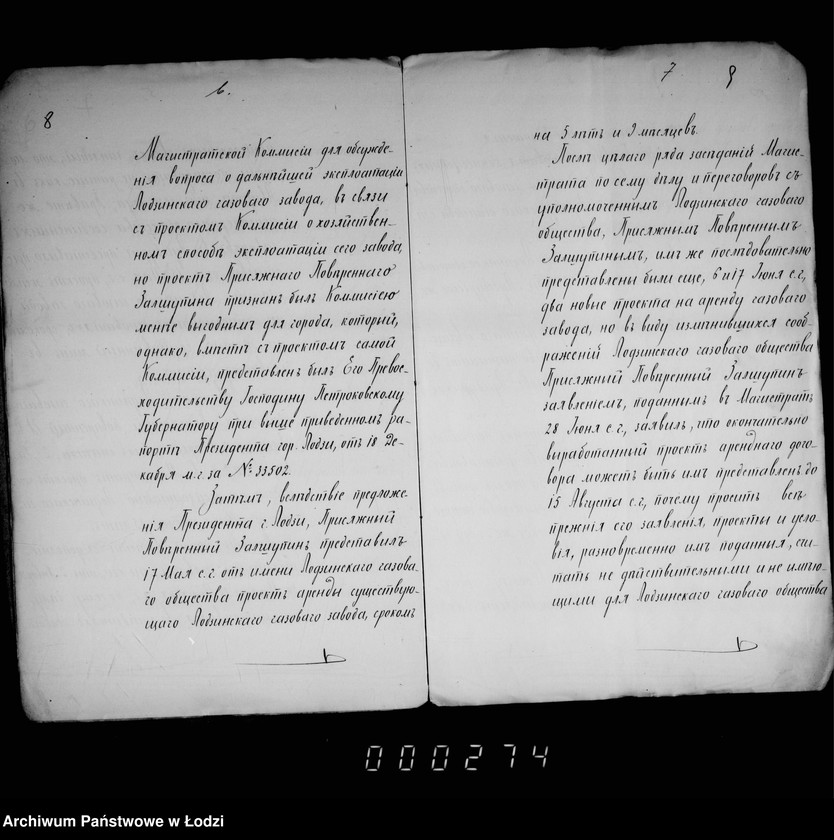 6.
8
Магистратской Коммисіи для обсужде-
нія вопроса о дальнѣйшей эксплоатаціи
Лодзинскаго газоваго завода, въ связи
съ проектомъ Коммисіи о хозяйствен-
номъ способѣ эксплоатаціи сего завода,
но проектъ Присяжнаго Повѣреннаго
Залшупина признанъ былъ Коммисіею
менѣе выгоднымъ для города, который,
однако, вмѣстѣ съ проектомъ самой
Коммисіи, представленъ былъ Его Превос-
ходительству Господину Петроковскому
Губернатору при выше приведенномъ ра-
портѣ Президента гор. Лодзи, отъ 18 Де-
кабря м.г. за № 33502.
Затѣмъ, вслѣдствіе предложе-
нія Президента г. Лодзи, Присяжный
Повѣренный Залшупинъ представилъ
17 Мая с.г. отъ имени Лодзинскаго газова
го общества проектъ аренды существую-
щаго Лодзинскаго газоваго завода, срокомъ
7
9
на 5 лѣтъ и 9 мѣсяцевъ.
Послѣ цѣлаго ряда засѣданій Магис-
трата по сему дѣлу и переговоровъ съ
уполномоченнымъ Лодзинскаго газоваго
общества, Присяжнымъ Повѣреннымъ
Залшупинымъ, имъ же послѣдовательно
представлены были еще, 6 и 17 Іюня с.г.,
два новые проекта на аренду газоваго
завода, но въ виду измѣнившихся сооб-
раженій Лодзинскаго газоваго общества
Присяжный Повѣренный Залшупинъ
заявленіемъ, поданнымъ въ Магистратъ
28 Іюня с.г., заявилъ, что окончательно
выработанный проектъ аренднаго дого-
вора можетъ быть имъ представленъ до
15 Августа с.г., почему проситъ всѣ
прежнія его заявленія, проекты и усло-
вія, разновременно имъ поданныя, счи-
тать не дѣйствительными и не имѣю-
щими для Лодзинскаго газоваго общества
000274
Archiwum Państwowe w Łodzi